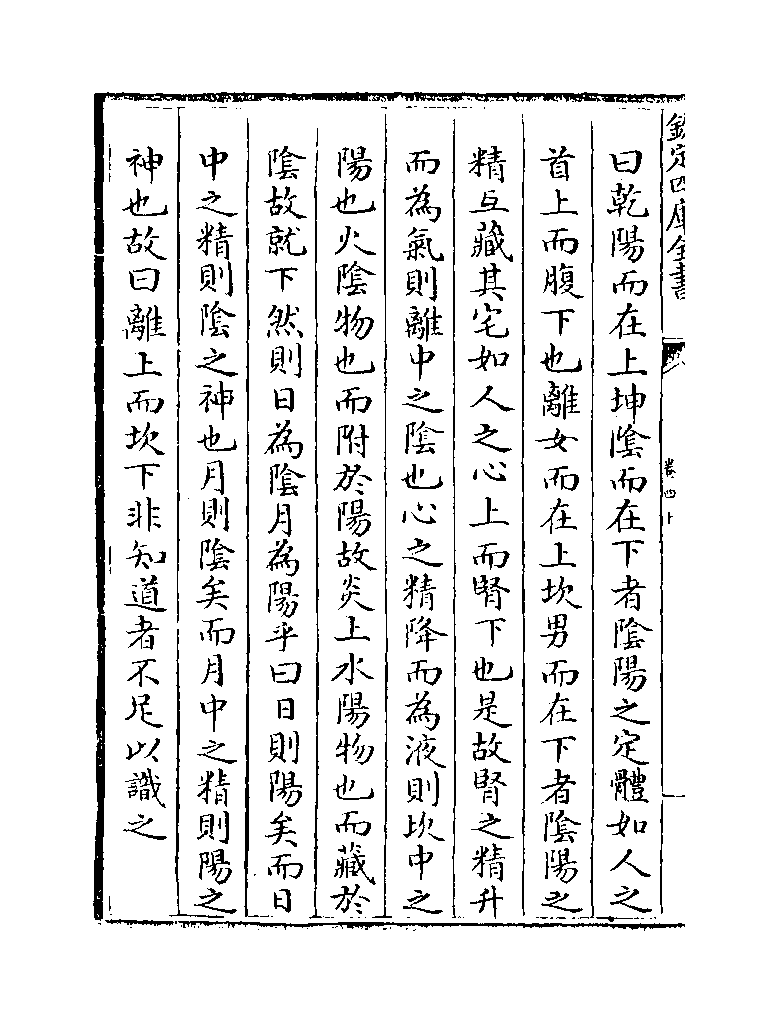 欽定四庫全書
卷四十
曰乾陽而在上坤隂而在下者隂陽之定體如人之
首上而腹下也離女而在上坎男而在下者隂陽之
精互藏其宅如人之心上而腎下也是故腎之精升
而為氣則離中之隂也心之精降而為液則坎中之
陽也火隂物也而附於陽故炎上水陽物也而藏於
隂故就下然則日為隂月為陽乎曰日則陽矣而日
中之精則隂之神也月則隂矣而月中之精則陽之
神也故曰離上而坎下非知道者不足以識之